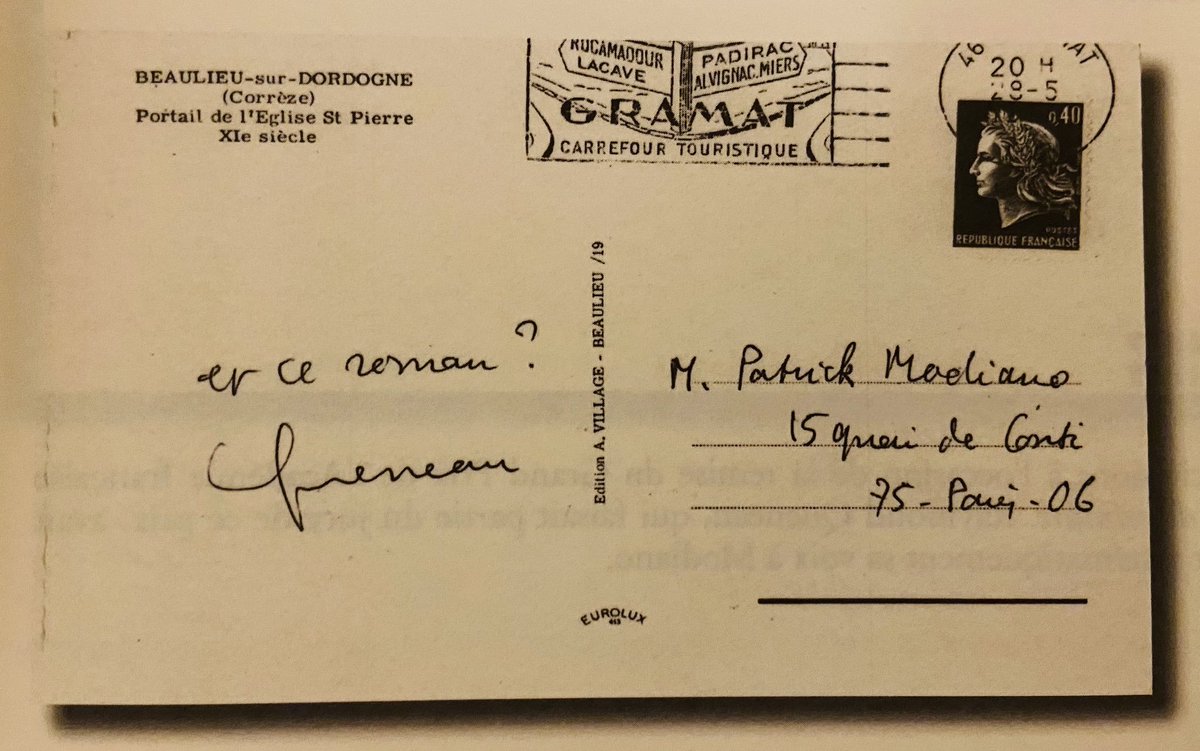 BEAULIEU-sur-DORDOGNE
(Corrèze)
Portail de l'Eglise St Pierre
XIe siècle
ROCAMADOUR
LACAVE
PADIRAC
ALVIGNAC.MIERS
GRAMAT
CARREFOUR TOURISTIQUE
46
20 H
28-5
0,40
POSTES
REPUBLIQUE FRANÇAISE
et ce roman ?
Queneau
Edition A. VILLAGE - BEAULIEU /19
M. Patrick Modiano
15 quai de Conti
75-Paris-06
EUROLUX